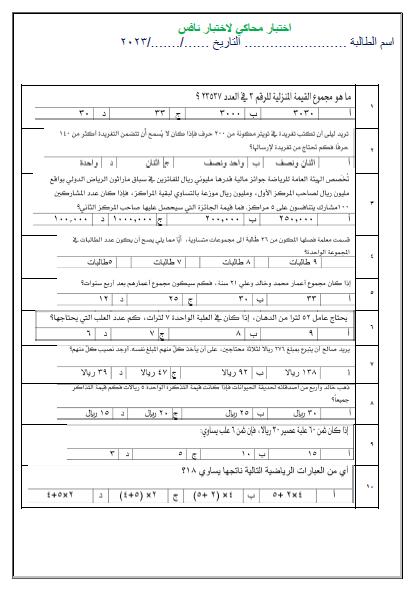 اختبار محاكي لاختبار نافس
اسم الطالبة ........................ التاريخ ....../......./٢٠٢٣
١ ما هو مجموع القيمة المنزلية للرقم ٣ في العدد ٢٣٥٣٧ ؟
أ ٣٠٣٠ ب ٣٠٠٠ ج ٣٣ د ٣٠
٢ تريد ليلى أن تكتب تغريدة في تويتر مكونة من ٢٠٠ حرف فإذا كان لا يُسمح أن تتضمن التغريدة أكثر من ١٤٠
حرفًا فكم تحتاج من تغريدة لإرسالها؟
أ اثنان ونصف ب واحد ونصف ج اثنان د واحدة
٣ تُخصص الهيئة العامة للرياضة جوائز مالية قدرها مليوني ريال للفائزين في سباق ماراثون الرياض الدولي بواقع
مليون ريال لصاحب المركز الأول، ومليون ريال موزعة بالتساوي لبقية المراكز، فإذا كان عدد المشاركين
١٠٠مشارك يتنافسون على ٥ مراكز. فما قيمة الجائزة التي سيحصل عليها صاحب المركز الثاني؟
أ ٢٥٠,٠٠٠ ب ٢٠٠,٠٠٠ ج ١,٠٠٠,٠٠٠ د ١٠٠,٠٠٠
٤ قسمت معلمة فصلها المكون من ٣٦ طالبة الى مجموعات متساوية، أيًا مما يلي يصح أن يكون عدد الطالبات في
المجموعة الواحدة؟
٩ طالبات ٨ طالبات ٧ طالبات ٥طالبات
٥ إذا كان مجموع أعمار محمد وخالد وعلي ٢١ سنة ، فكم سيكون مجموع أعمارهم بعد أربع سنوات؟
أ ٣٣ ب ٣٠ ج ٢٥ د ١٢
٦ يحتاج عامل ٥٢ لترا من الدهان، إذا كان في العلبة الواحدة ٧ لترات، كم عدد العلب التي يحتاجها؟
أ ٩ ب ٨ ج ٧ د ٦
٧ يريد صالح أن يتبرع بمبلغ ٢٧٦ ريالا لثلاثة محتاجين، على أن يأخذ كلٌ منهم المبلغ نفسه. أوجد نصيب كلٌ منهم؟
أ ١٣٨ ريالا ب ٩٢ ريالا ج ٤٧ ريالا د ٣٩ ريالا
٨ ذهب خالد وأربع من أصدقائه لحديقة الحيوانات فإذا كانت قيمة التذكرة الواحدة ٥ ريالات فكم قيمة التذاكر
جميعاً؟
أ ٣٠ ريال ب ٢٥ ريال ج ٢٠ ريال د ١٥ ريال
٩ إذا كان ثمن ٦٠ علبة عصير ٣٠ ريالا، فإن ثمن ٦ علب يساوي:
أ ١٥ ب ١٠ ج ٥ د ٣
١٠ أي من العبارات الرياضية التالية ناتجها يساوي ١٨؟
أ ٤× ٢+٥ ب ٤× (٢ +٥) ج ٢× (٤+٥) د ٢×٥+٤